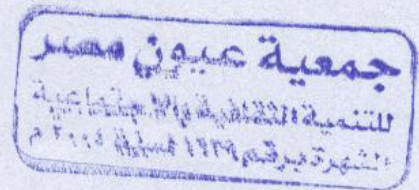 جمعية عيون مصر
للتنمية الثقافية والاجتماعية
المشهرة برقم لسنة ٢٠٠٤ م